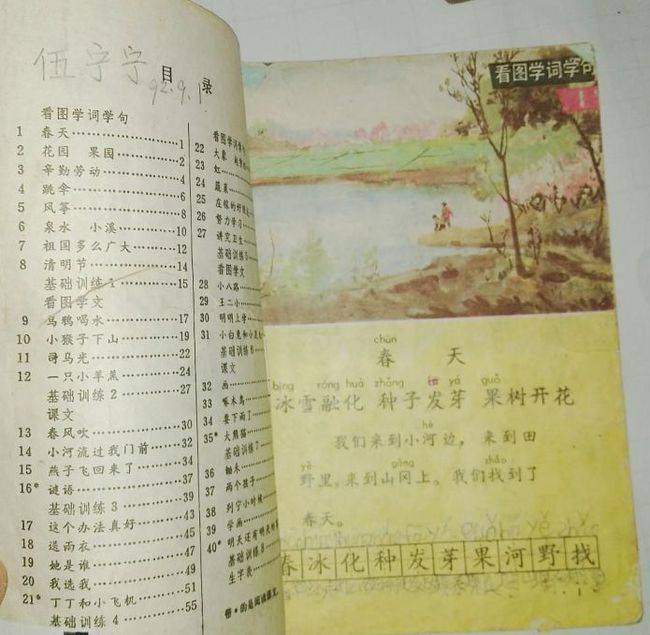 伍宁宁
目录
92.9.1
看图学词学句
1 春天……1
2 花园 果园……2
3 辛勤劳动……4
4 跳伞……6
5 风筝……8
6 泉水 小溪……10
7 祖国多么广大……12
8 清明节……14
基础训练1……15
看图学文
9 乌鸦喝水……17
10 小猴子下山……19
11 司马光……22
12 一只小羊羔……24
基础训练2……27
课文
13 春风吹……30
14 小河流过我门前……32
15 燕子飞回来了……34
16* 谜语……37
基础训练3……39
17 这个办法真好……43
18 送雨衣……45
19 她是谁……47
20 我选我……49
21* 丁丁和小飞机……51
基础训练4……55
看图学词学
22 大象
23 虹
24 蔬菜
25 庄稼的好
26 努力学习
27 讲究卫生
基础训练5
看图学文
28 小八路
29 王二小
30 明明上学
31 小白兔和小
基础训练6
课文
32 画
33 啄木鸟
34 要下雨了
35* 大熊猫
基础训练7
36 柚木
37 两个孩子
38 列宁小时候
39 学画
40* 明天还有
基础训练8
生字表
带*的是阅读课文
看图学词学句
1
chūn
春天
bīng róng huà zhǒng fā yá guǒ
冰雪融化 种子发芽 果树开花
hé
我们来到小河边，来到田
yě gāng zhǎo
野里，来到山冈上。我们找到了
春天。
春冰化种发芽果河野找
1